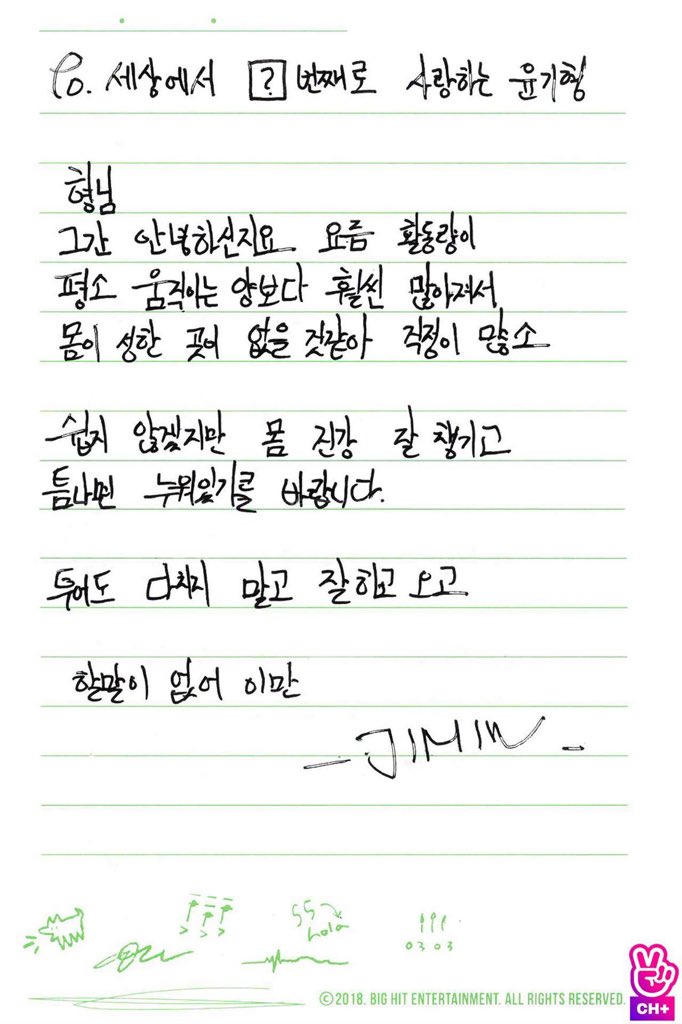 To. 세상에서 ? 번째로 사랑하는 윤기형
형님
그간 안녕하신지요. 요즘 활동량이
평소 움직이는 양보다 훨씬 많아져서
몸이 성한 곳이 없을 것같아 걱정이 많소
쉽지 않겠지만 몸 건강 잘 챙기고
틈나면 누워있기를 바랍니다.
투어도 다치지 말고 잘하고 오고
할말이 없어 이만
- JIMIN -
hola
03 03
©2018. BIG HIT ENTERTAINMENT. ALL RIGHTS RESERVED.
CH+